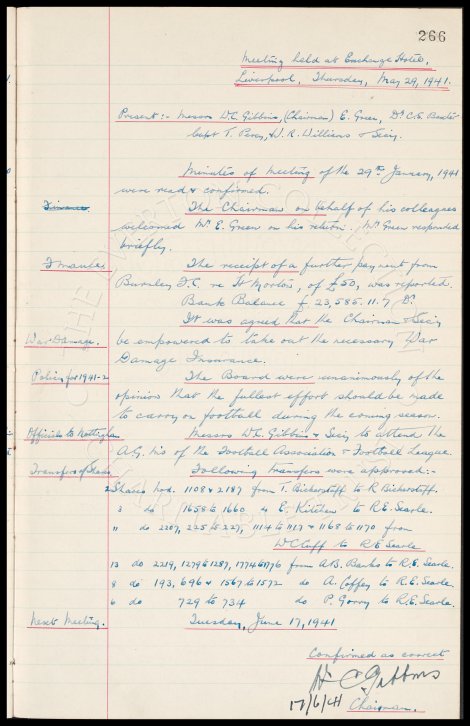 266
Meeting held at Exchange Hotel,
Liverpool, Thursday, May 29, 1941.
Present :- Messrs W.C. Gibbins, (Chairman) E. Green, Dr C.S. Baxter
Capt T. Percy, W. R. Williams & Secy.
Minutes of meeting of the 29th January, 1941
were read & confirmed.
Finance. The Chairman on behalf of his colleagues
welcomed Mr E. Green on his return. Mr Green responded
briefly.
Finance The receipt of a further payment from
Burnley F.C. re Jt Morton, of £50, was reported.
Bank Balance £23,585.11.7 Dr.
It was agreed that the Chairman & Secy
War Damage. be empowered to take out the necessary War
Damage Insurance.
Policy for 1941-2 The Board were unanimously of the
opinion that the fullest effort should be made
to carry on football during the coming season.
Officials to Messrs W.C. Gibbins & Secy to attend the
A.G. M's of the Football Association & Football League.
Transfers of Shares Following transfers were approved :-
2 Shares nos. 1108 & 2187 from T. Bickerstaff to R Bickerstaff.
3 do 1658 to 1660 E. Kitchen to R.E. Searle.
11 do 2207, 225 to 227, 1114 to 1117 & 1168 to 1170 from
W C Cuff to R.E Searle
13 do 2219, 1279 to 1287, 1774 to 1776 from A.B. Banks to R.E. Searle.
8 do 193, 696 & 1567 to 1572 do A. Coffey to R.E. Searle.
6 do 729 to 734 do P. Gorry to R.E. Searle.
Next Meeting. Tuesday, June 17, 1941
Confirmed as correct
W C Gibbins
17/6/41 Chairman.